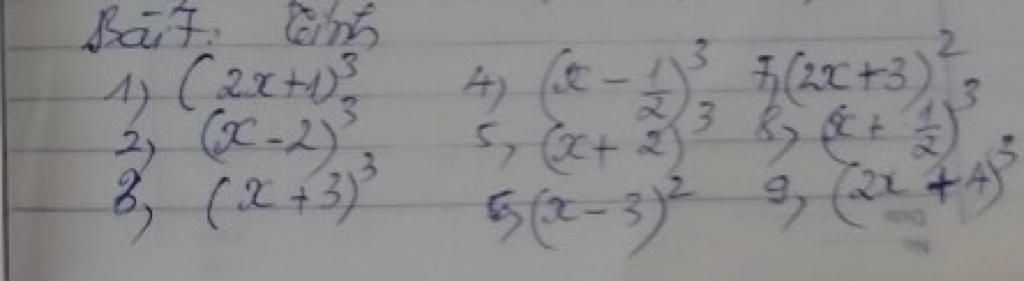 Bài 7: Tính
1) (2x+1)³ 4) (x - 1/2)³ 7, (2x+3)²
2, (x-2)³ 5, (x+2)³ 8, (x + 1/2)³
3, (x+3)³ 6, (x-3)² 9, (2x+4)³